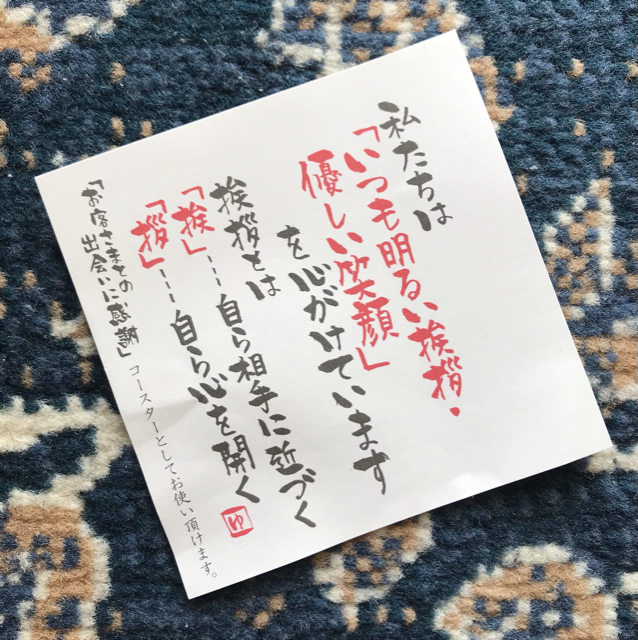 私たちは
「いつも明るい挨拶・
優しい笑顔」
を心がけています
挨拶とは
「挨」…自ら相手に近づく
「拶」…自ら心を開く
ゆ
「お客さまとの
出会いに感謝」
コースターとしてお使い頂けます。